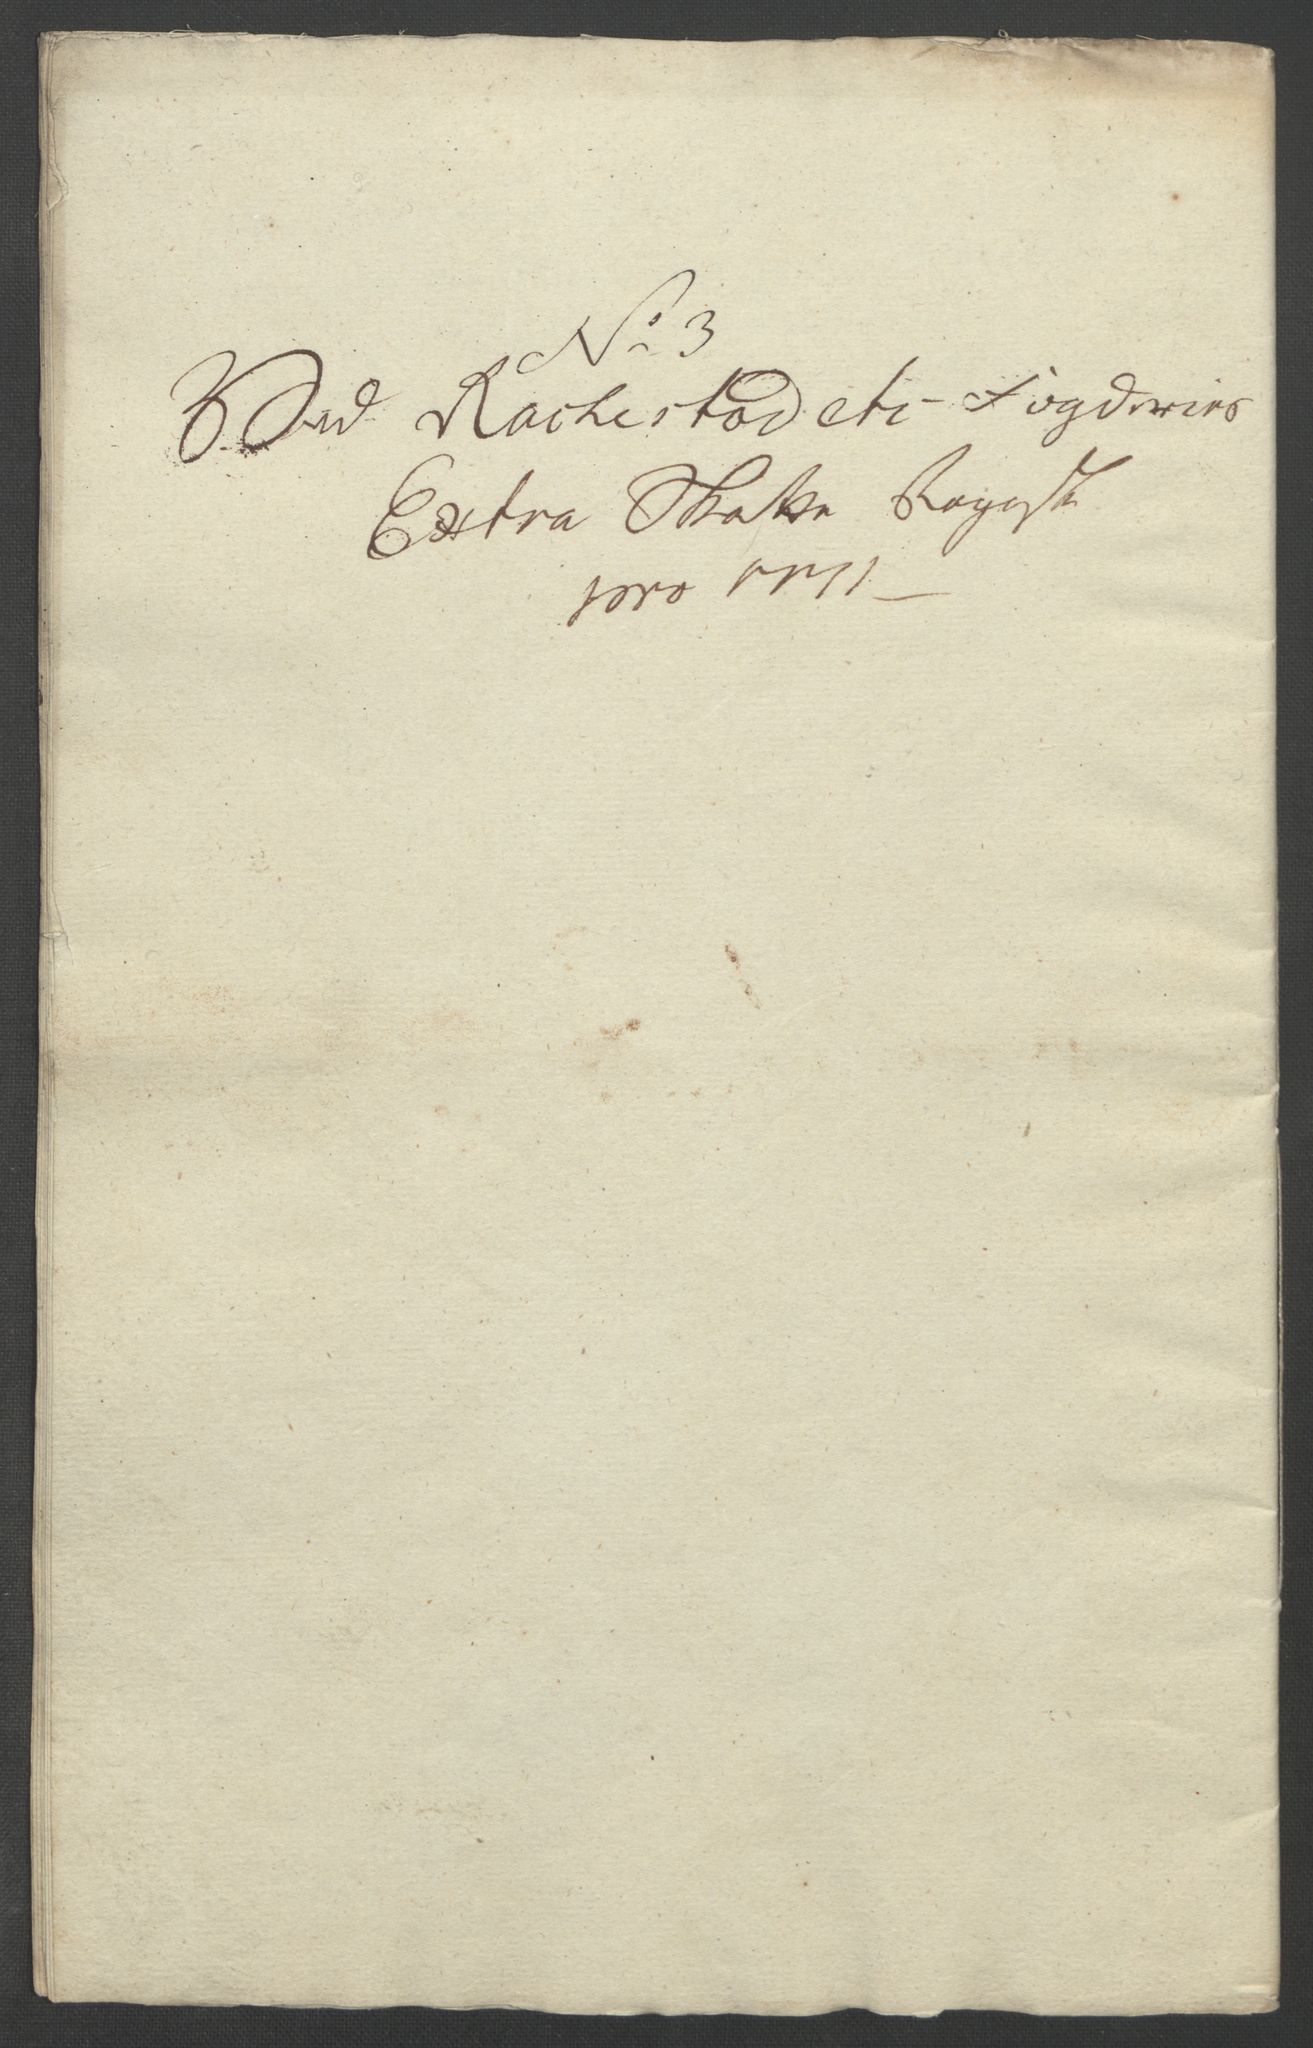 No 3
Ved Rachestad etc Fogderies
Extra Skatte Regist
pro 1771